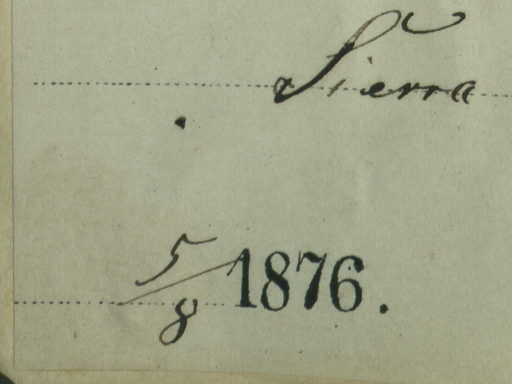 Sierra
5/8 1876.